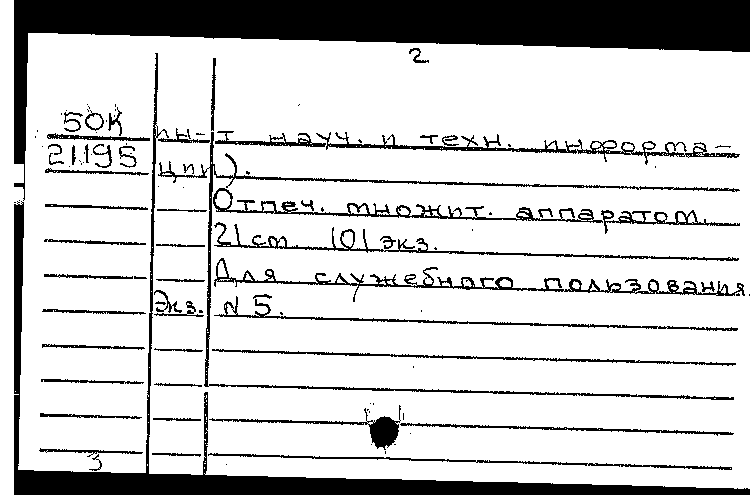 2
50К ин-т науч. и техн. информа-
21195 ции).
Отпеч. множит. аппаратом.
21 см. 101 экз.
Для служебного пользования
Экз. N 5.
3